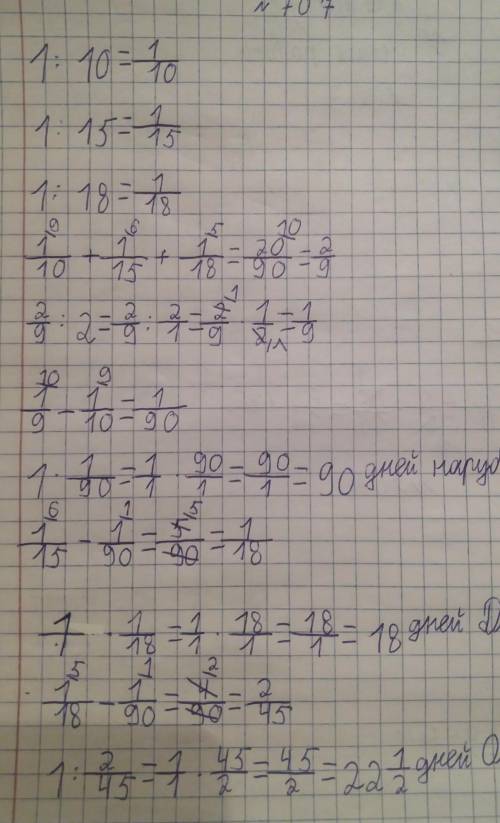 № 707
1 : 10 = 1/10
1 : 15 = 1/15
1 : 18 = 1/18
1/10 ⁹ + 1/15 ⁶ + 1/18 ⁵ = 20/90 ¹⁰ = 2/9
2/9 : 2 = 2/9 : 2/1 = 2/9 · 1/2 = 1/9
1/9 ¹⁰ - 1/10 ⁹ = 1/90
1 · 1/90 = 1/1 · 90/1 = 90/1 = 90 дней наруб
1/15 ⁶ - 1/90 ¹ = /90 = 1/18
1 · 1/18 = 1/1 · 18/1 = 18/1 = 18 дней D
1/18 ⁵ - 1/90 ¹ = 4/90 = 2/45
1 : 2/45 = 1/1 · 45/2 = 45/2 = 22 1/2 дней О